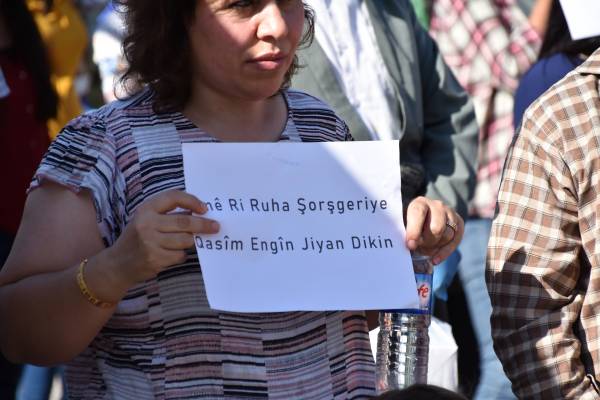 mê Ri Ruha Şorşgeriye
Qasîm Engîn Jiyan Dikin